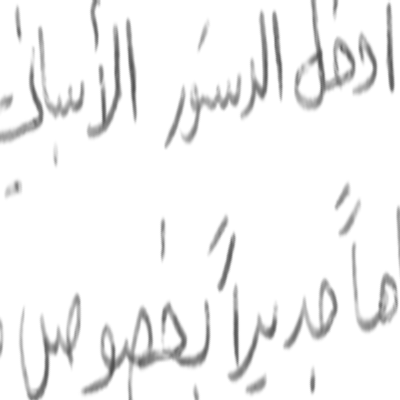 ادخل الدستور الأسباني
هاً جديداً بخصوص